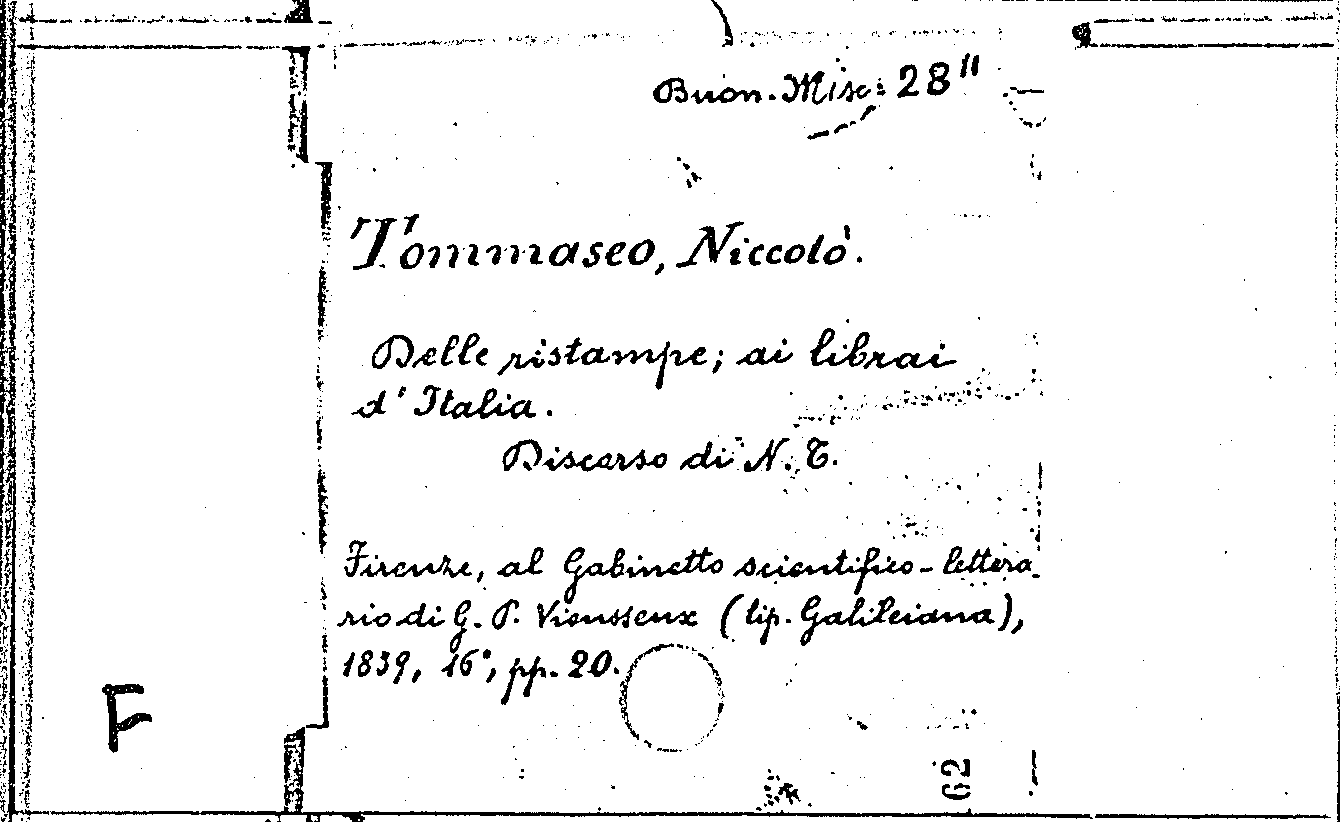 Buon. Misc. 28"
Tommaseo, Niccolò.
Delle ristampe; ai librai
d'Italia.
Discorso di N. T.
Firenze, al Gabinetto scientifico-lettera-
rio di G. P. Vieusseux (tip. Galileiana),
1839, 16°, pp. 20.
F
62